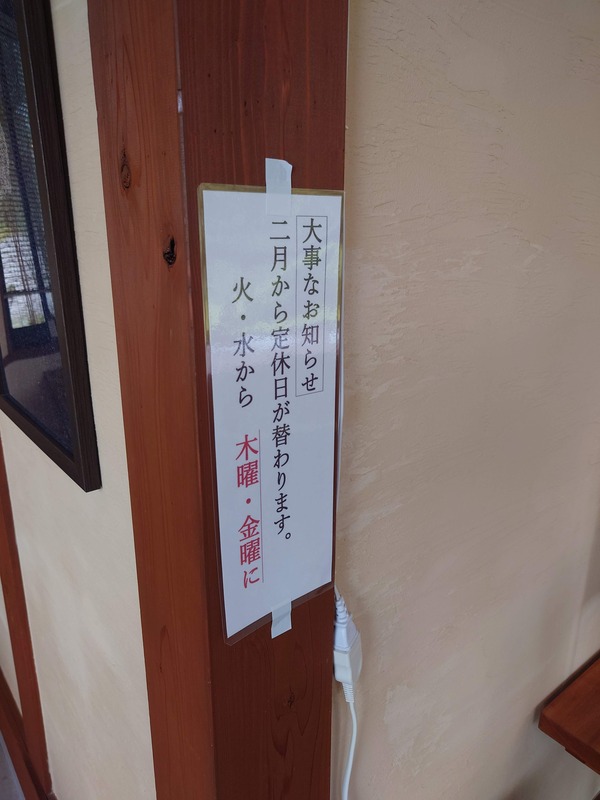 大事なお知らせ
二月から定休日が替わります。
火・水から 木曜・金曜に